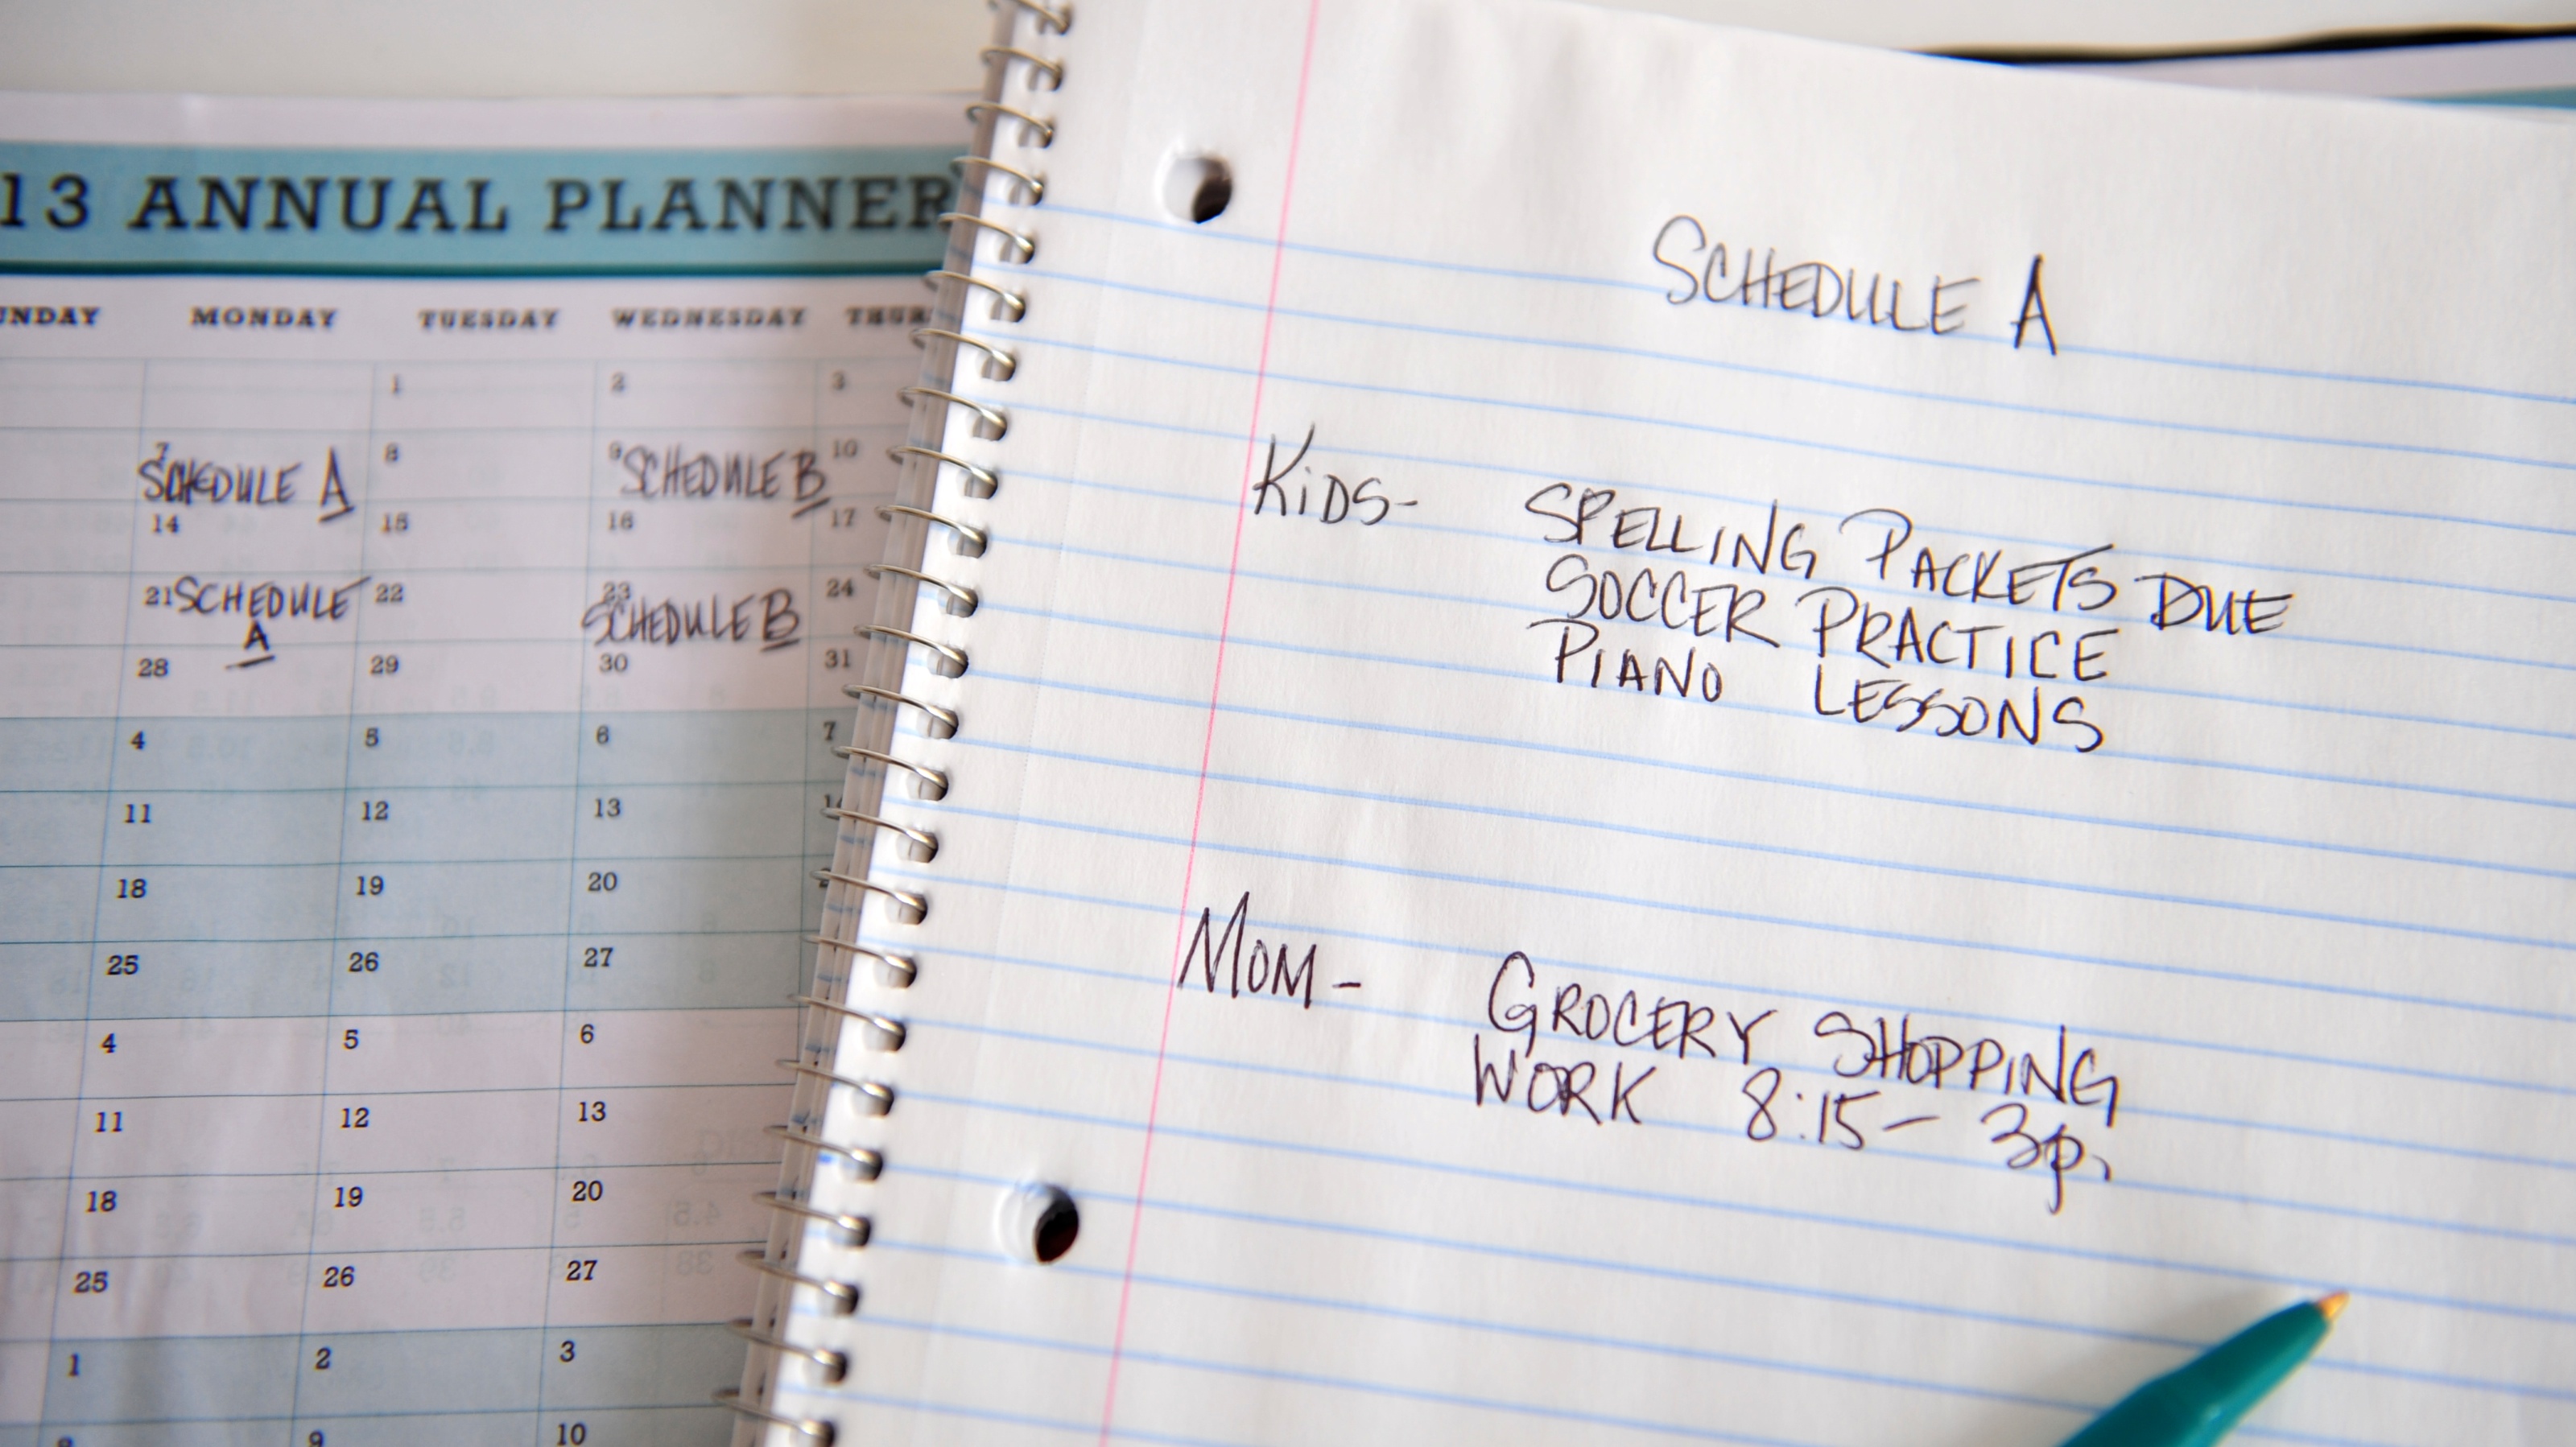 13 ANNUAL PLANNER
UNDAY MONDAY TUESDAY WEDNESDAY THUR
1 2 3
7 8 9 10
SCHEDULE A SCHEDULE B
14 15 16 17
21 22 23 24
SCHEDULE SCHEDULE B
A
28 29 30 31
4 5 6 7
11 12 13
18 19 20
25 26 27
4 5 6
11 12 13
18 19 20
25 26 27
1 2 3
8 9 10
SCHEDULE A
KiDS- SPELLING PACKETS DUE
SOCCER PRACTICE
PIANO LESSONS
MOM- GROCERY SHOPPING
WORK 8:15- 3p.